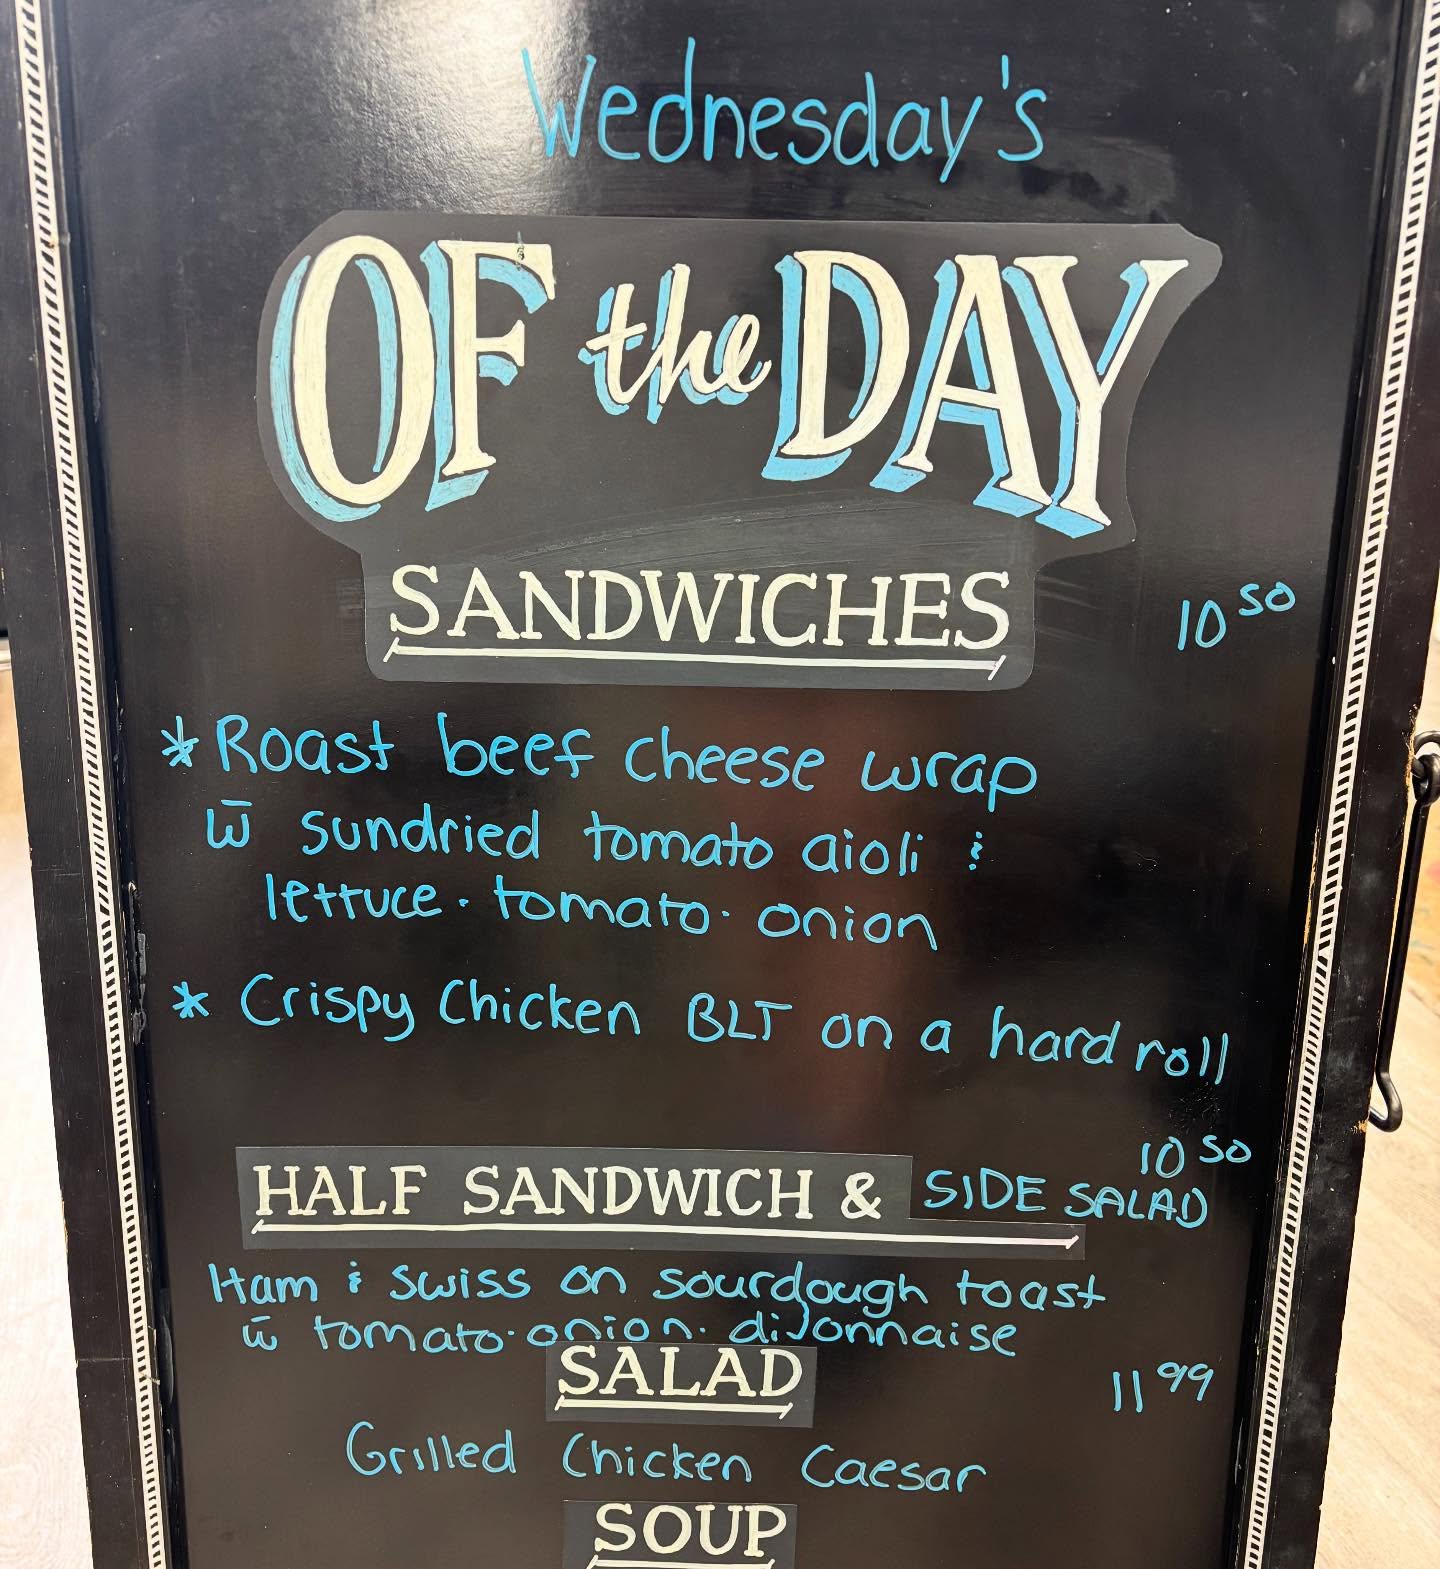 Wednesday's
OF the DAY
SANDWICHES 10 50
* Roast beef cheese wrap
w̄ sundried tomato aioli &
lettuce · tomato · onion
* Crispy Chicken BLT on a hard roll
10 50
HALF SANDWICH & SIDE SALAD
Ham & swiss on sourdough toast
w̄ tomato · onion · dijonnaise
SALAD 11 99
Grilled Chicken Caesar
SOUP